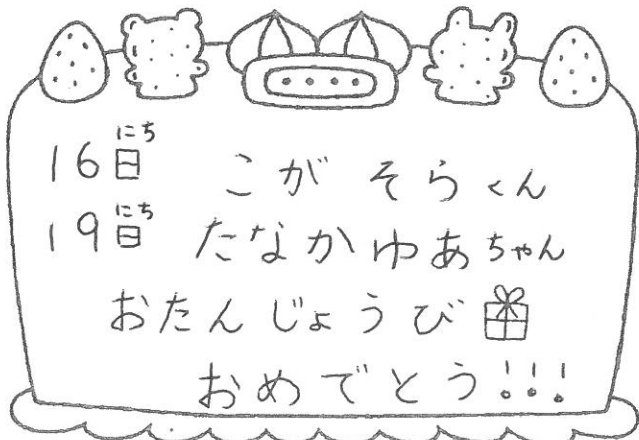 16日 こが そらくん
19日 たなかゆあちゃん
おたんじょうび
おめでとう!!!